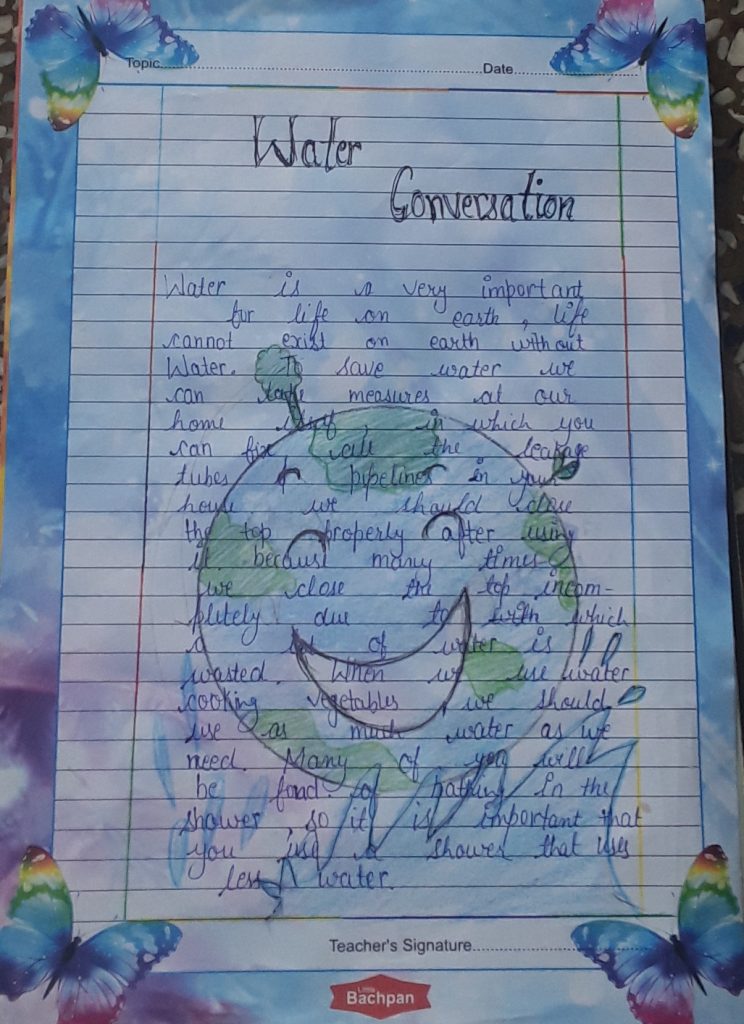 Topic Date
Water
Conversation
Water is a very important
for life on earth, life
cannot exist on earth without
Water. To save water we
can take measures at our
home itself, in which you
can fix all the leakage
tubes of pipelines in your
house we should close
the top properly after using
it because many times
we close the top incom-
pletely due to with which
a lot of water is
wasted. When we use water
cooking vegetables, we should
use as much water as we
need. Many of you will
be fond of bathing in the
shower, so it is important that
you use a shower that uses
less water.
Teacher's Signature
Little
Bachpan